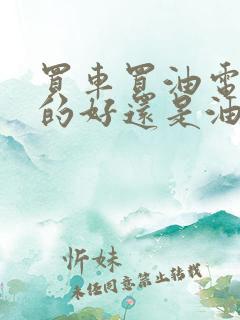 買車買油電
的好還是油
忻妹
未經同意禁止轉載